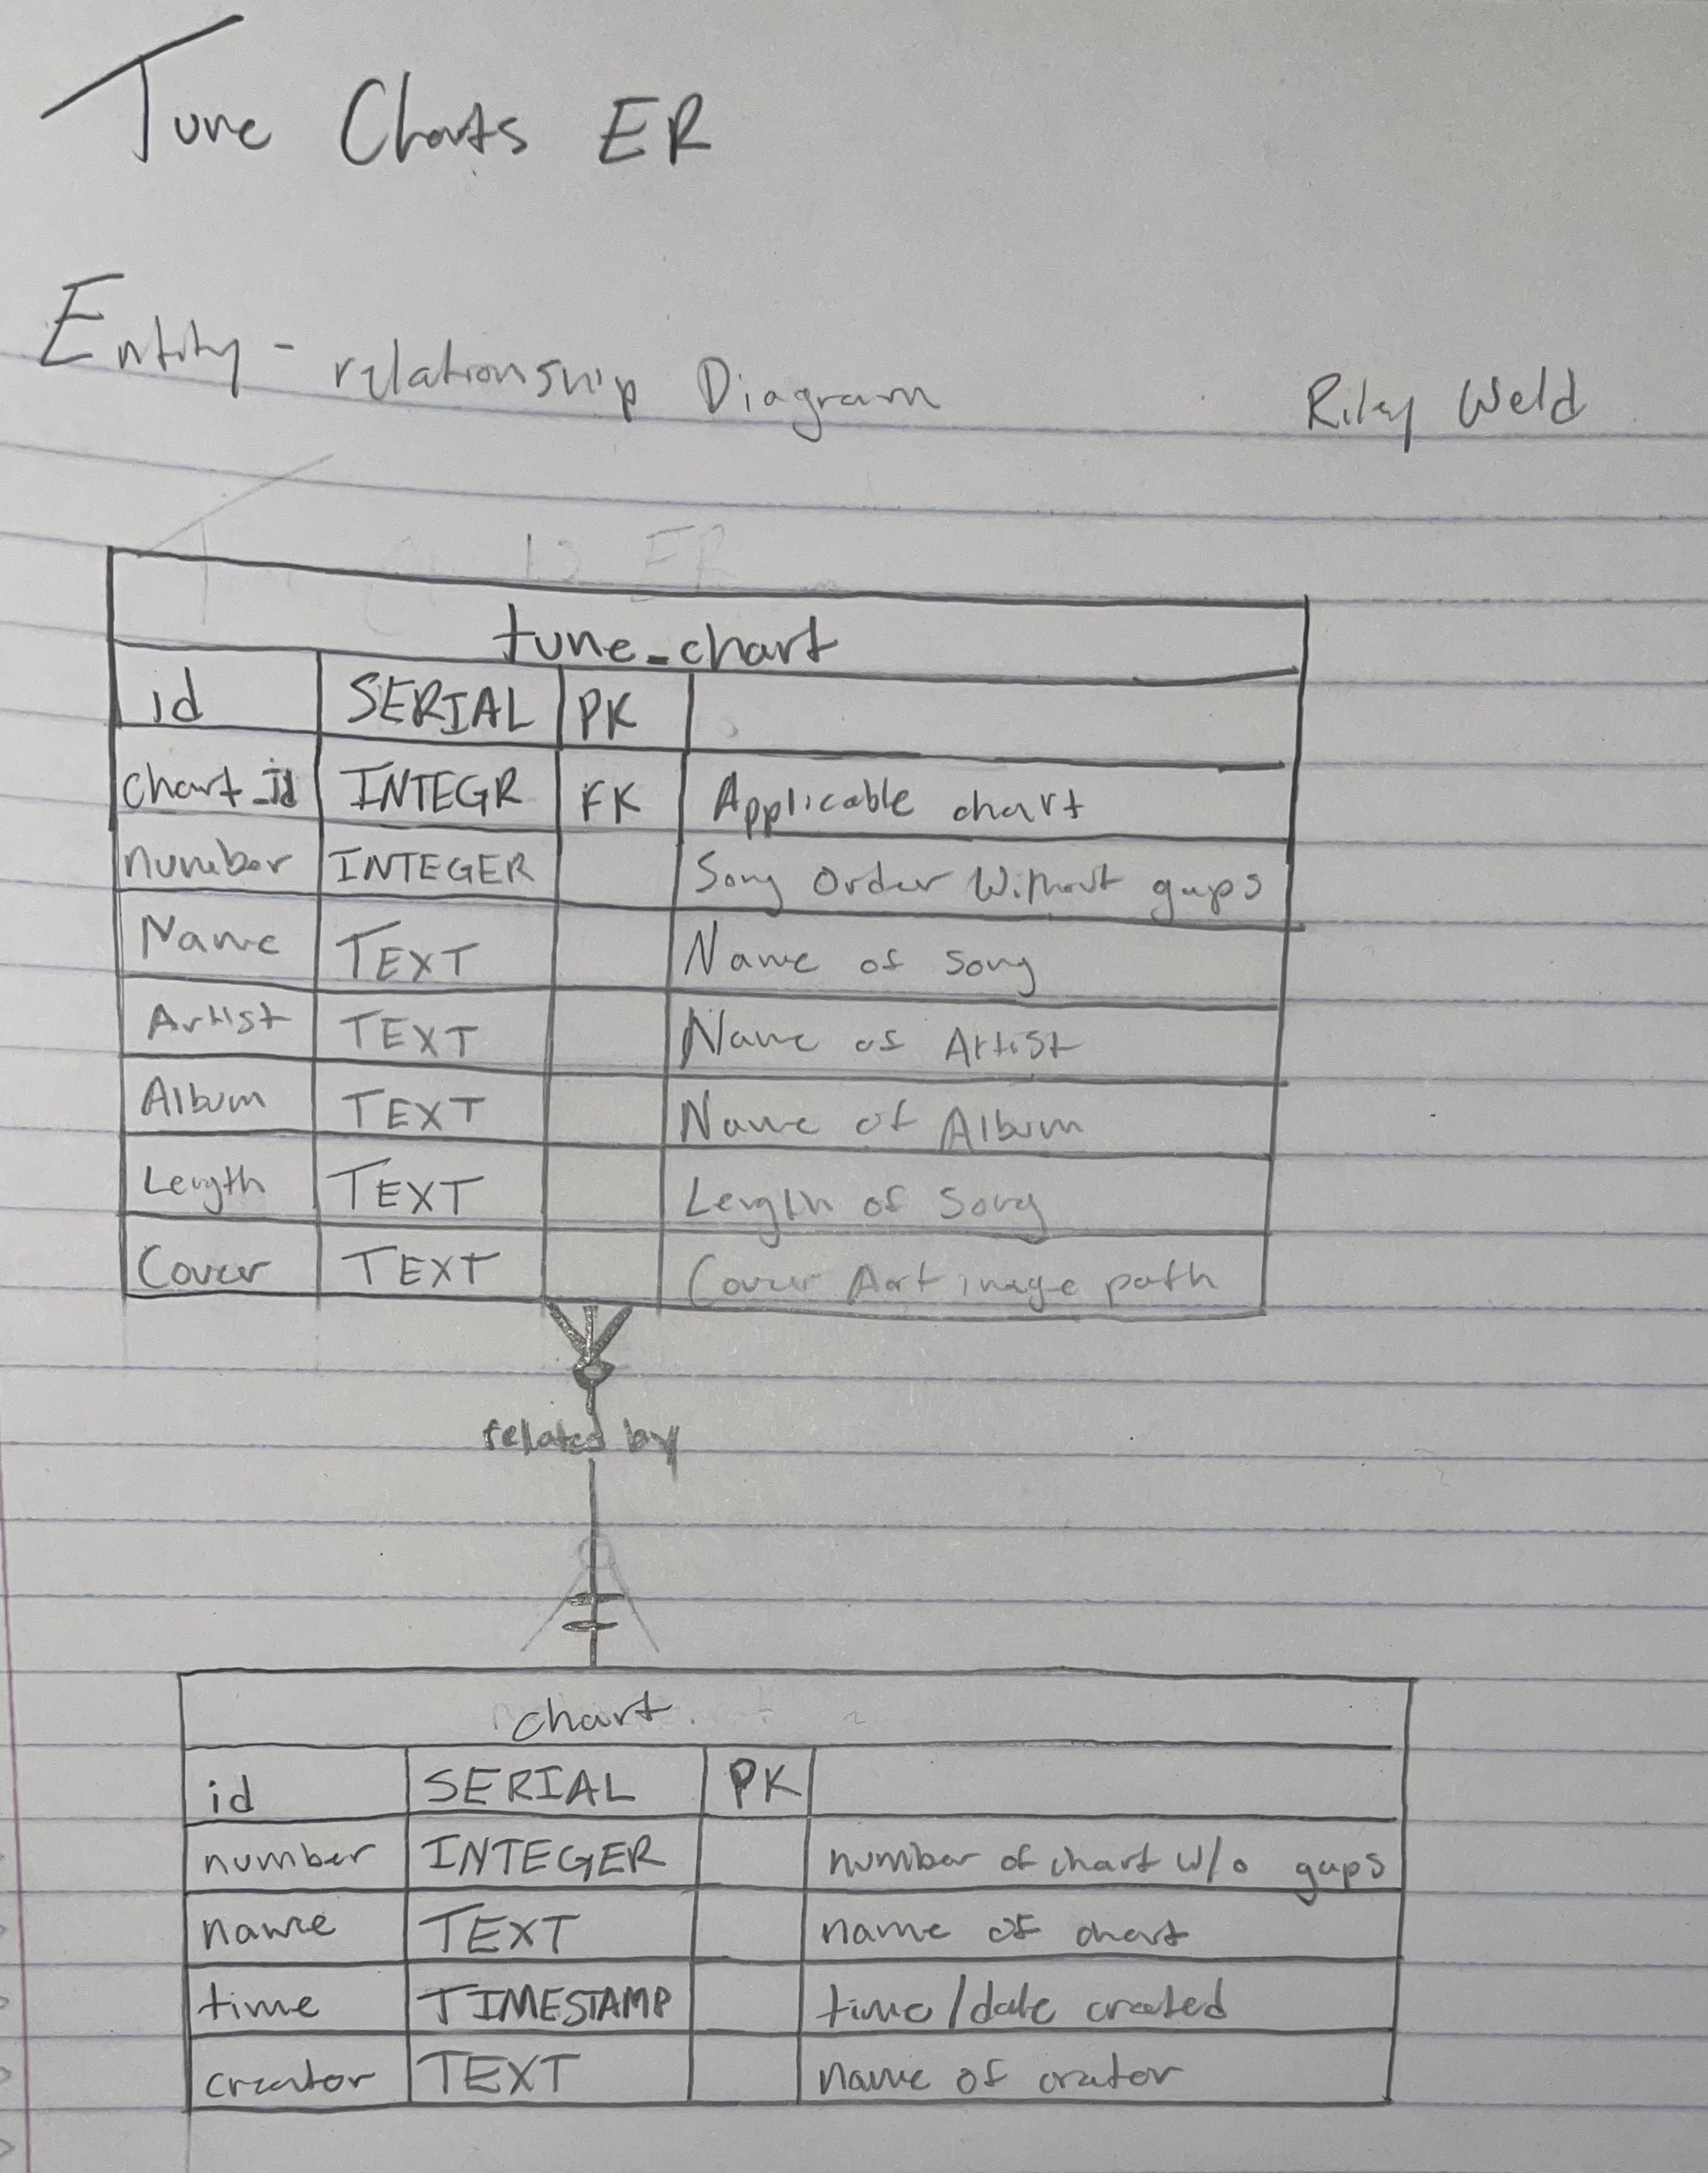 Tune Charts ER
Entity-relationship Diagram Riley Weld
tune_chart
id SERIAL PK
chart_id INTEGR FK Applicable chart
number INTEGER Song Order Without gaps
Name TEXT Name of Song
Artist TEXT Name of Artist
Album TEXT Name of Album
Length TEXT Length of Song
Cover TEXT Cover Art image path
related by
chart
id SERIAL PK
number INTEGER number of chart w/o gaps
name TEXT name of chart
time TIMESTAMP time/date created
creator TEXT name of crator